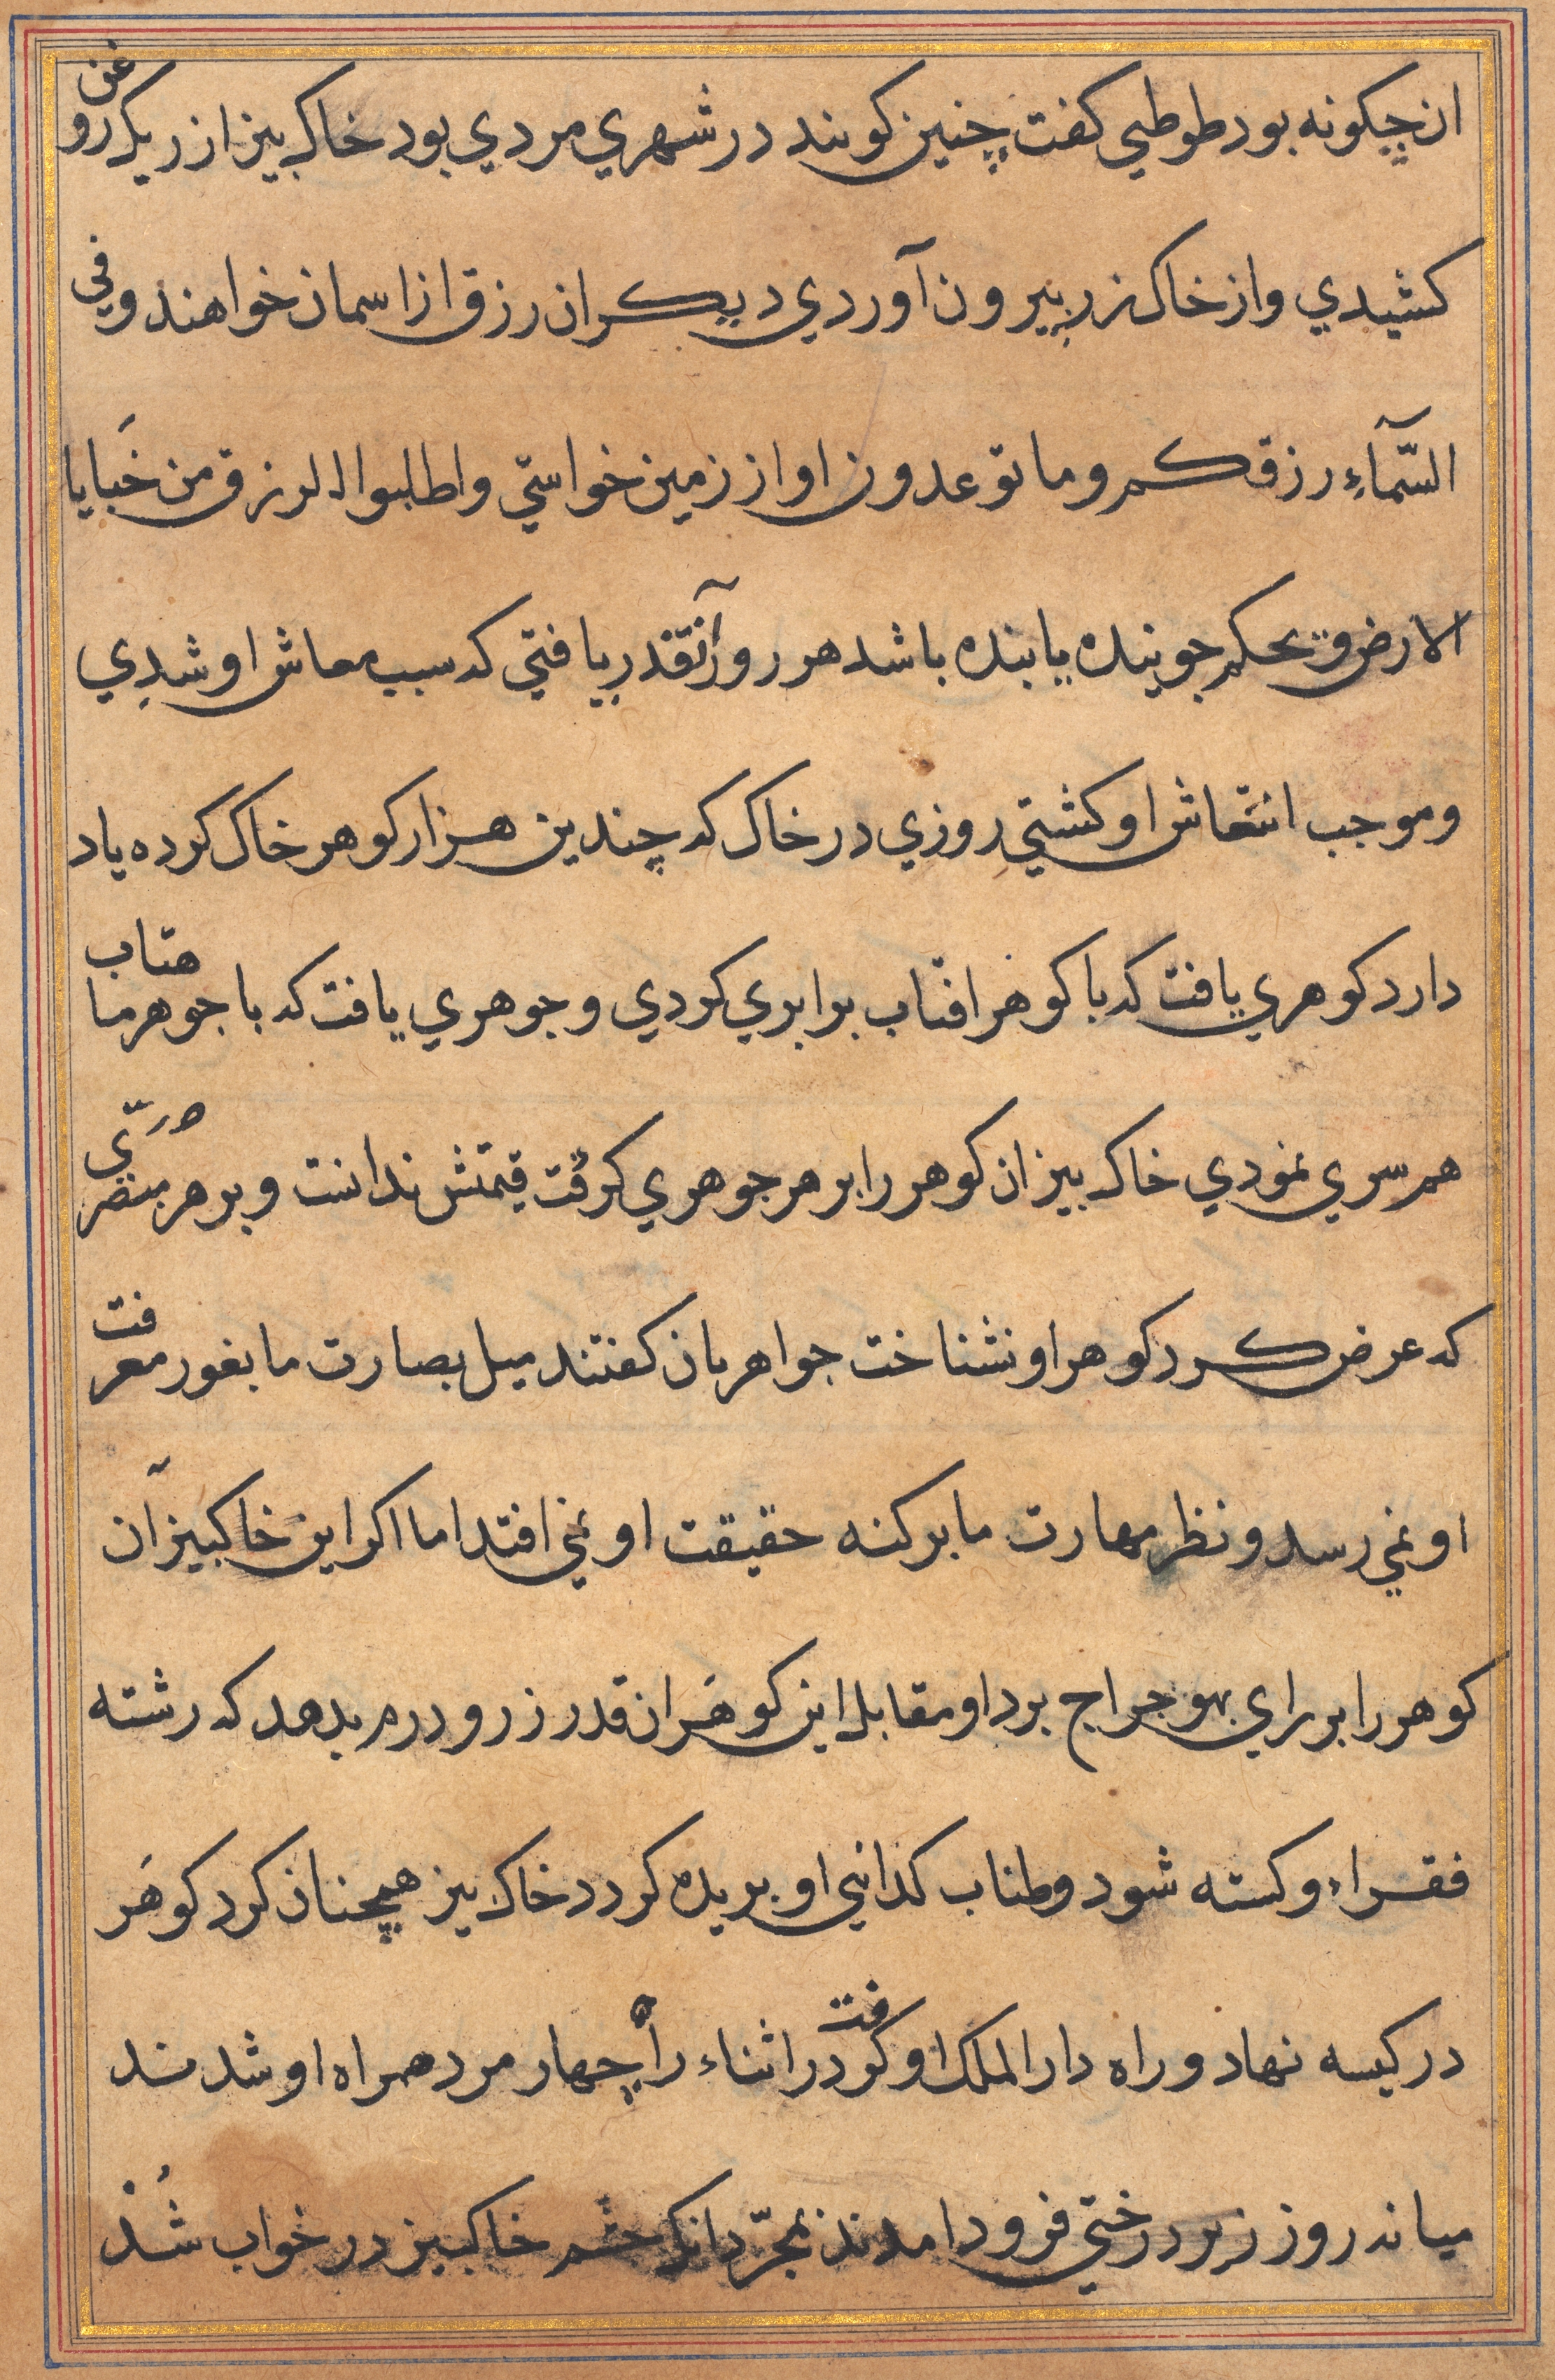 ان چکونه بود طوطی کفت چنین کویند در شهري مردي بود خاک بیز از ریک روغن
کشیدي و از خاک زر بیرون آوردي دیکران رزق از اسمان خواهند و في
السّمآءِ رزقکم و ما توعدون او از زمین خواستي و اطلبوا الرزق من خَبایا
الارض و بحکم جوینده یابنده باشد هر روز آنقدر یافتي که سبب معاش او شدي
و موجب انتعاش او کشتي روزي در خاک که چندین هزار کوهر خاک کرده یاد
دارد کوهري یافت که با کوهر افتاب برابري کردي و جوهري یافت که با جوهر ماهتاب
همسري نمودي خاک بیز ان کوهر را بر هر جوهري کرفت قیمتش ندانست و بر هر مبصّري
که عرض کرد کوهر او نشناخت جواهریان کفتند میل بصارت ما بغور معرفت
او نمي رسد و نظر مهارت ما بر کنه حقیقت او نمي افتد اما اکر این خاکبیز آن
کوهر را بر راي بهوجراج برد او مقابل این کوهَر ان قدر زر و درم بدهد که رشته
فقراء و کسته شود و طناب کدائي او بریده کردد خاک بیز همچنان کرد کوهَر
در کیسه نهاد و راه دار الملک او کرفت در اثناء راه چهار مرد همراه او شدند
میانه روز زیر درختي فرود امدند بمجرّد انکه چشم خاکبیز در خواب شُدْ